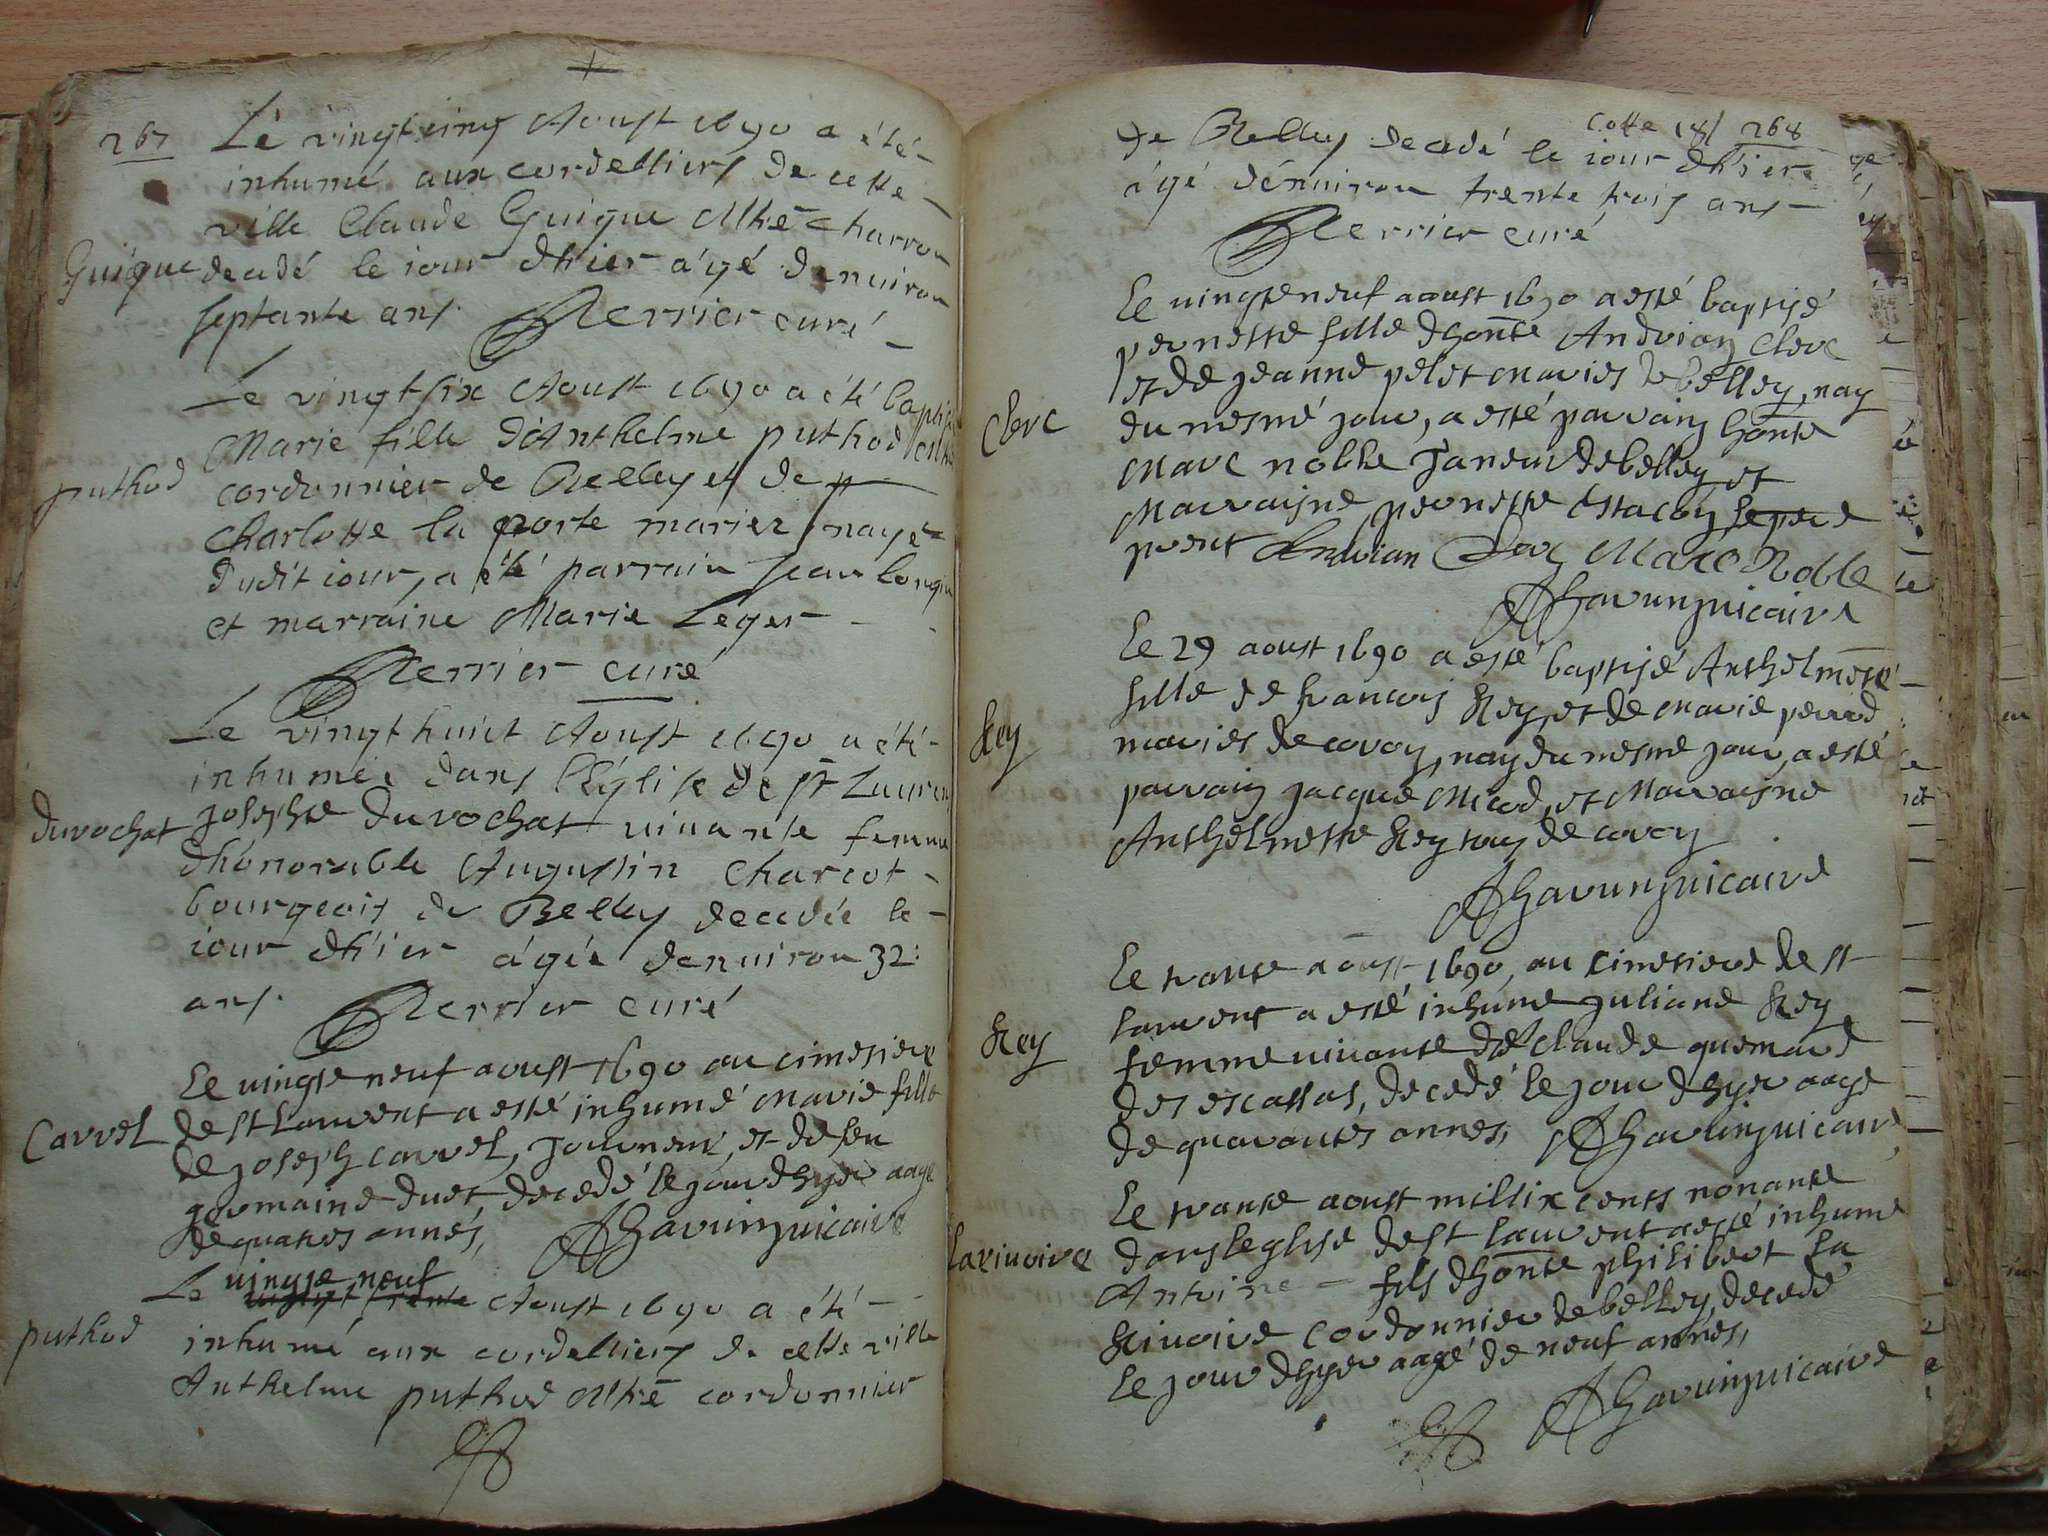 267
Le vingtcinq Aoust 1690 a été
inhumé aux cordelliers de cette
ville Claude Guigue Mtre charron
Guigue
decedé le iour d'hier âgé denuiron
septante ans. Perrier curé
Le vingtsix Aoust 1690 a été baptisé
Marie fille d'Anthelme puthod
puthod
cordonnier de Belley et de
Charlotte la porte mariez, naye
dudit iour, a été parrain Jean
et marraine Marie Leger
Perrier curé
Le vingthuict Aoust 1690 a été
inhumée dans l'Eglise de st Laurent
durochat
Josephte durochat uiuante femme
d'honorable Augustin Charcot
bourgeois de Belley decedée le
iour d'hier âgée denuiron 32:
ans. Perrier curé
Le uingte neuf aoust 1690 au cimetiere
Carrel
de st Laurent a esté inhumé marie fille
de Joseph carrel, journeur, et de feu
germaine duet, decedé le jour dhyer aage
de quatres annés, Hauunuicaire
Le vingte neuf Aoust 1690 a été
puthod
inhumé aux cordelliers de cette ville
Anthelme puthod Mtre cordonnier
Cotte 181 268
de Belley decedé le iour d'hier
âgé dénuiron trente trois ans
Perrier curé
Le uingte neuf aoust 1690 a esté baptisé
pernette fille dhonte Andrian Clerc
et de jeanne pelet maries de belley, nay
Clerc
du mesme jour, a esté parrain honte
Marc noble Janeur de belley et
Marraisne pernette le pere
prent Andrian Clerc Marc Noble
vicaire
Le 29 aoust 1690 a esté baptisé Anthelmette
fille de francois Rey, et de marie perrod
Rey
maries de coron, nay du mesme jour, a esté
parrain jacque et Marraisne
Anthelmette Rey tous de coron
vicaire
Le trante aoust 1690, au cimetiere de st
laurent a esté inhume juliane Rey
Rey
femme uiuante de Claude quemard
des escassas, decedé le jour dhyer aage
de quarantes annes, vicaire
Le trante aoust millix cents nonante
Larivoire
dans leglise de st laurent a esté inhume
Antoine fils dhonte philibert la
Rivoire cordonnier de belley, decedé
le jour dhyer aagé de neuf annes,
vicaire